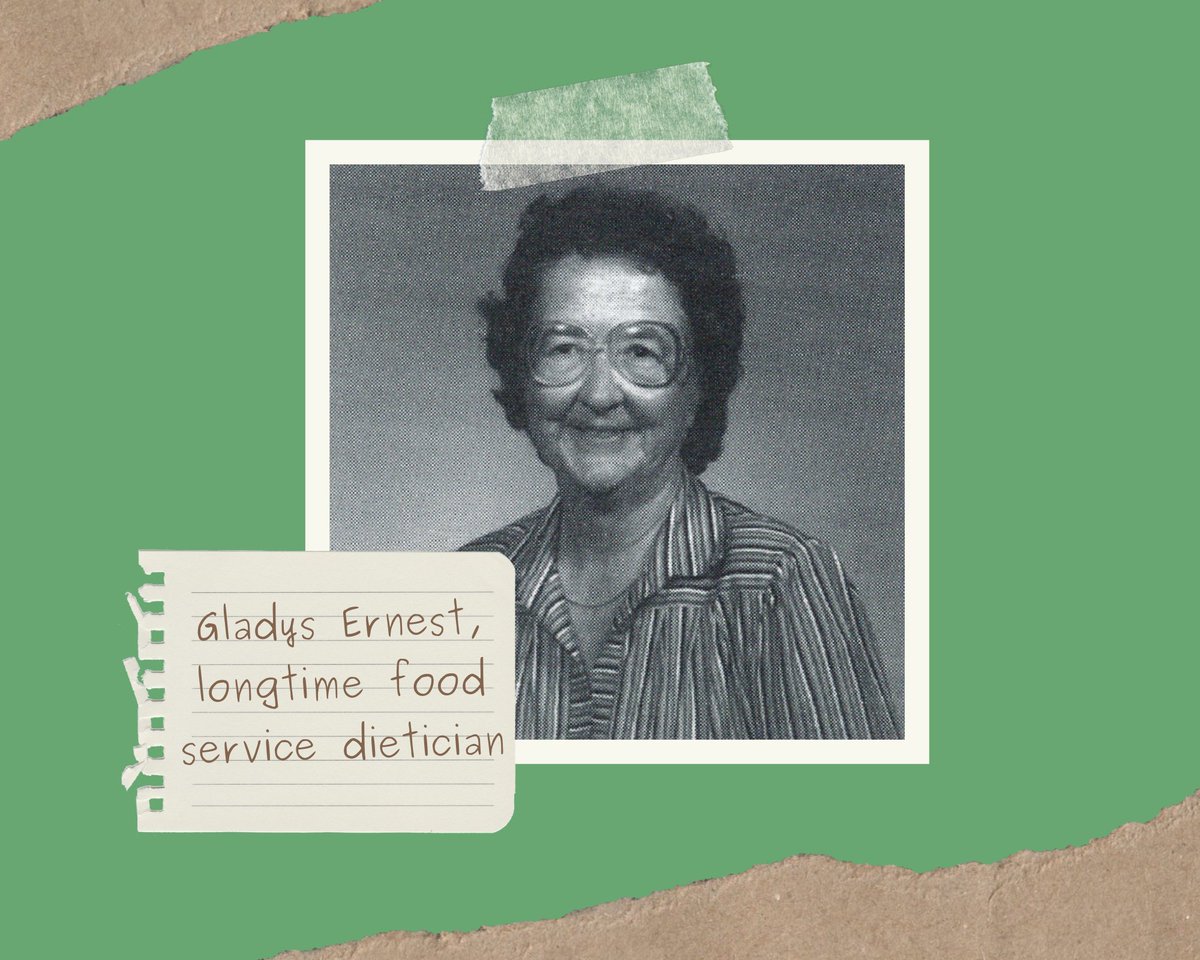 Gladys Ernest,
longtime food
service dietician